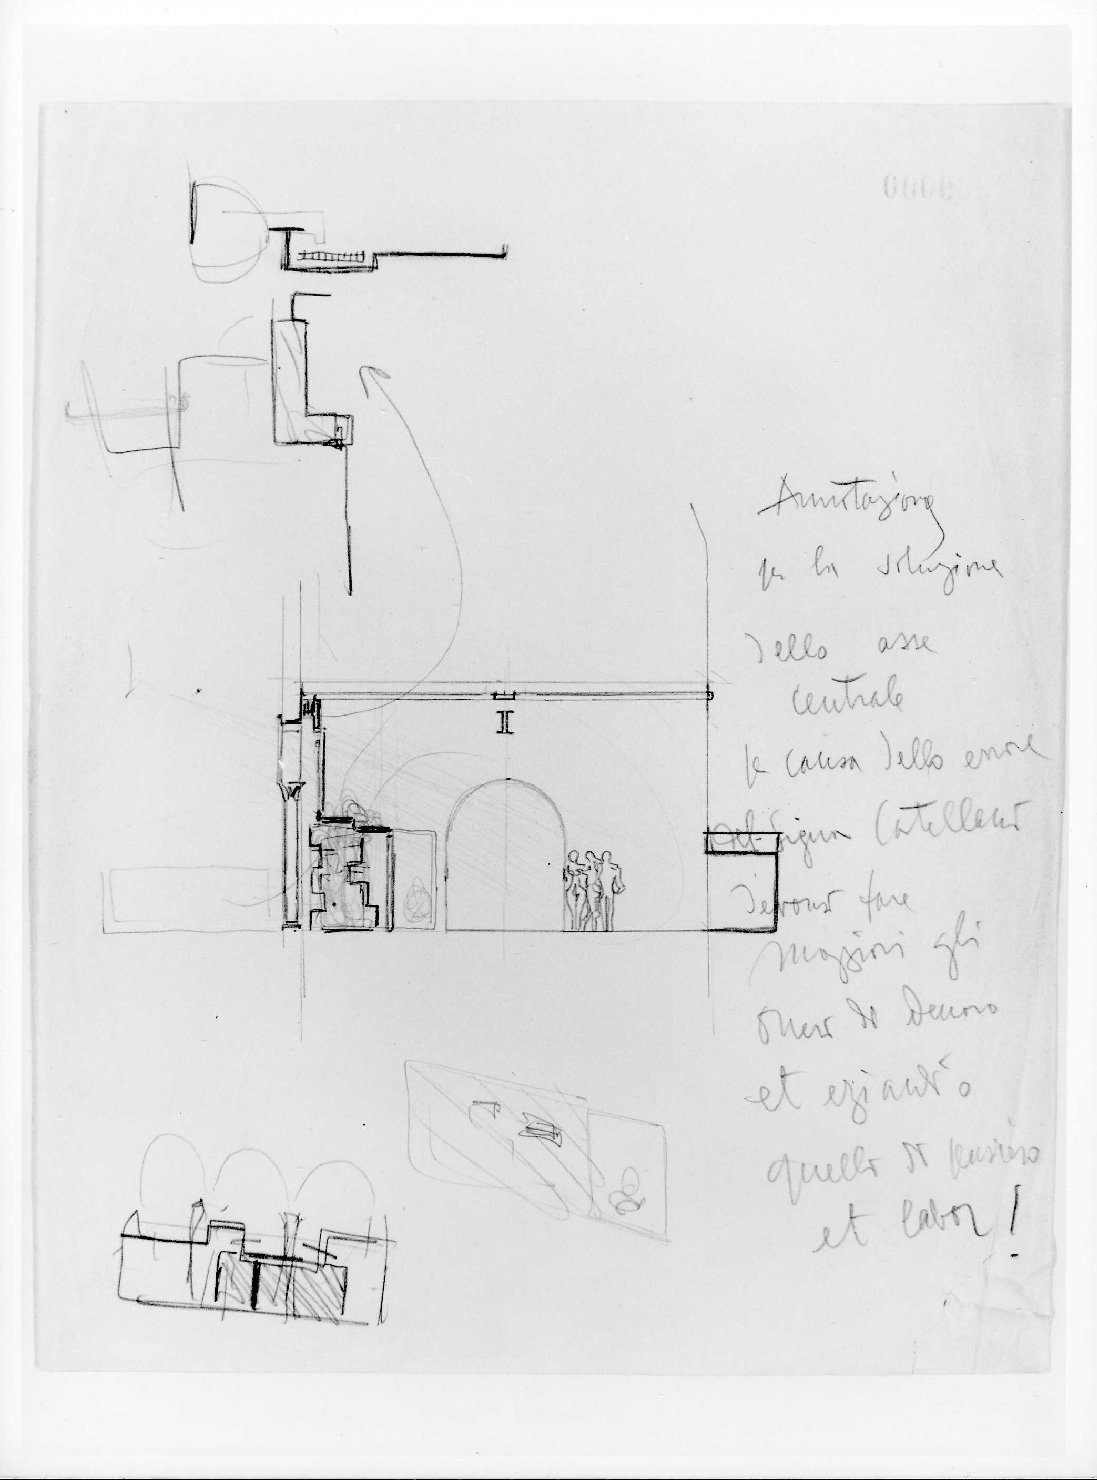 Annotazione
per la soluzione
dello asse
centrale
per causa dello errore
del Signor
devonsi fare
maggiori gli
oneri di denaro
et eziandio
quelli di pensiero
et labor!